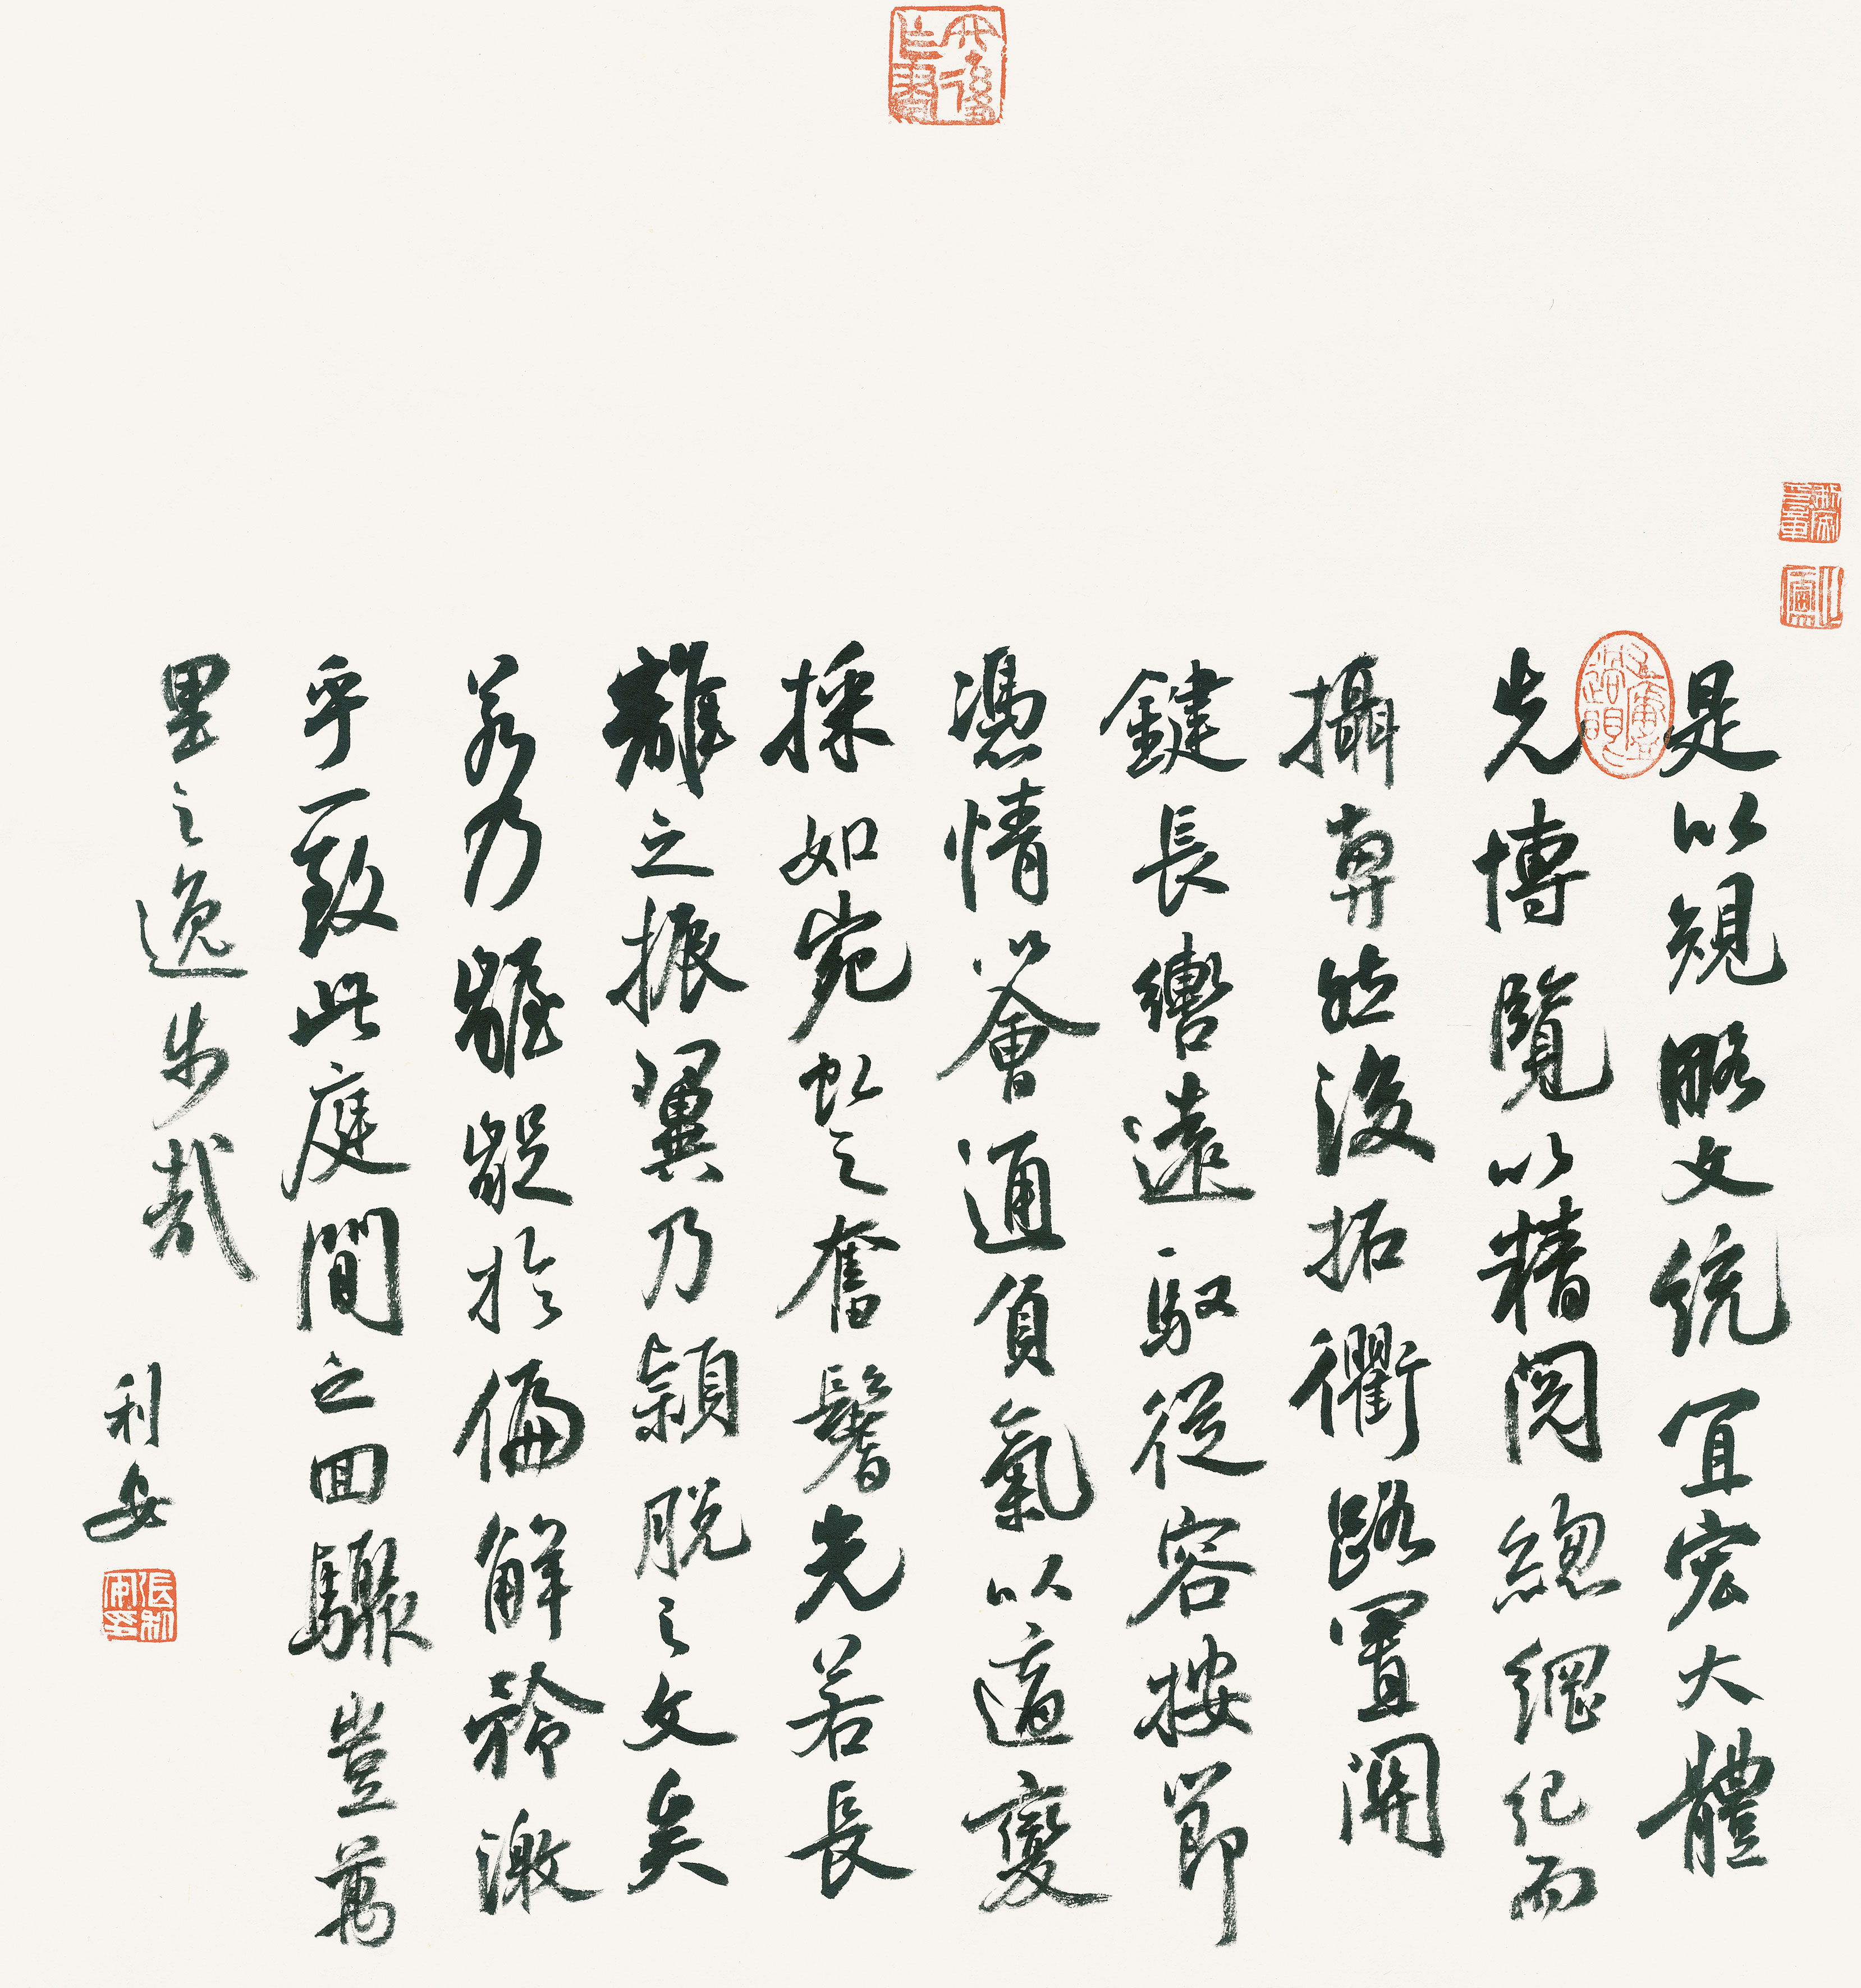 是以規略文統宜宏大體
先博覽以精閱總綱紀而
攝專然後拓衢路置關
鍵長轡遠馭從容按節
憑情以會通負氣以適變
採如宛虹之奮鬐光若長
離之振翼乃穎脫之文矣
若乃齷齪於偏解矜激
乎一致此庭間之回驟豈萬
里之逸步哉
利安